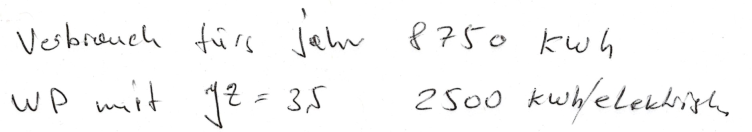 Verbrauch fürs Jahr 8750 kWh
WP mit JZ = 3,5 2500 kWh/elektrisch